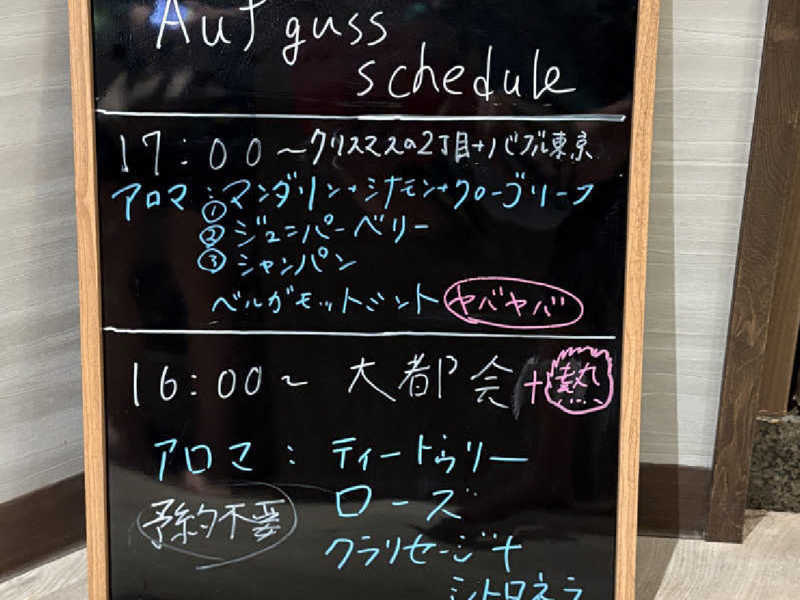 Aufguss
schedule
17:00～クリスマスの2丁目+バブル東京
アロマ:①マンダリン+シナモン+クローブリーフ
②ジュニパーベリー
③シャンパン
ベルガモットミント ヤバヤバ
16:00～ 大都会+熱
アロマ: ティートゥリー
ローズ
予約不要
クラリセージ+
シトロネラ